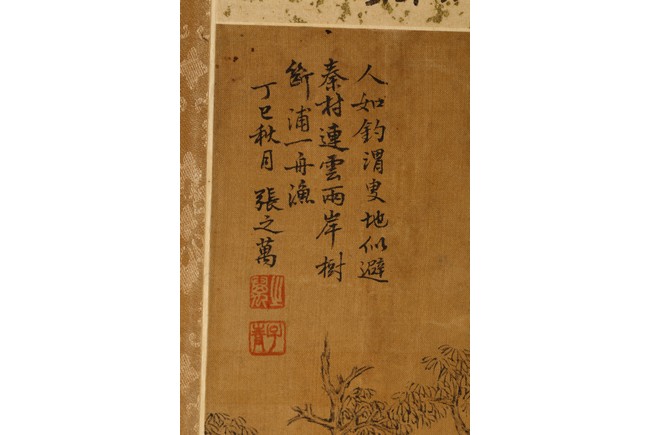 人如釣渭叟地似避
秦村連雲兩岸樹
斷浦一舟漁
丁巳秋月 張之萬
之萬
子青